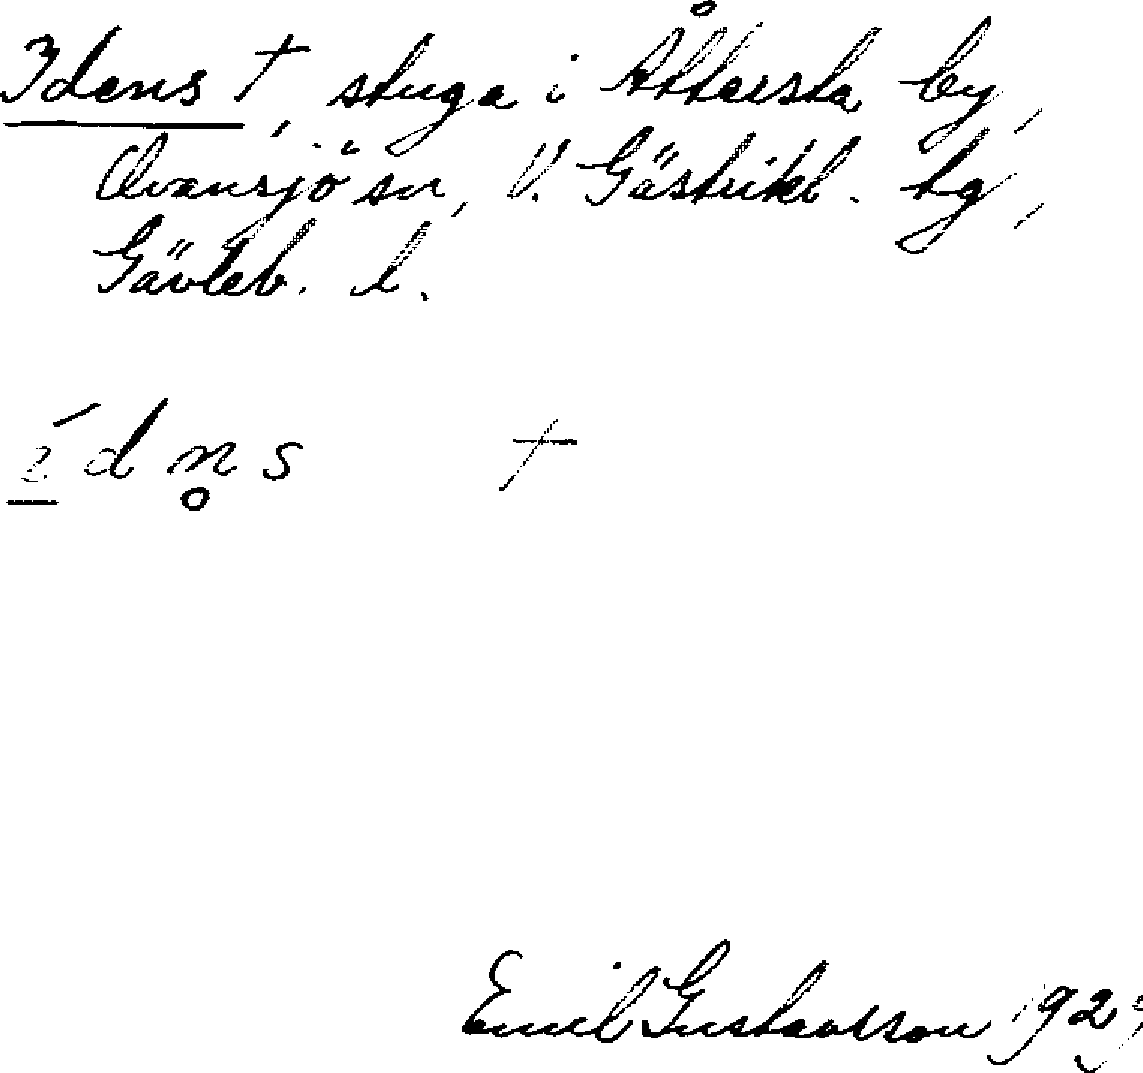 Idens †, stuga i Åttersta by,
Ovansjö sn, V. Gästrikl. tg,
Gävleb. l.
í̱dn̥s †
Emil Gustavsson